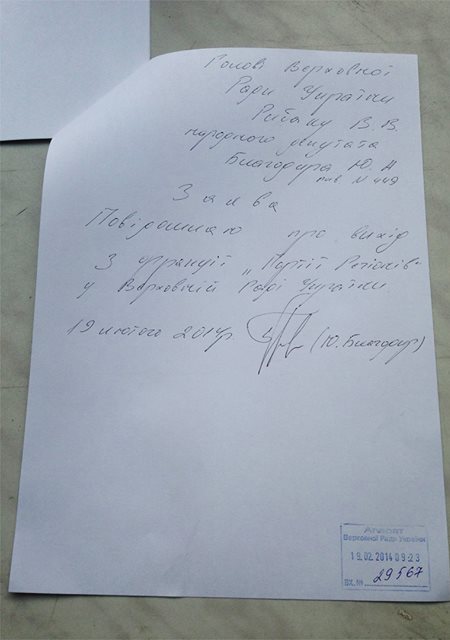 Голові Верховної
Ради України
Рибаку В.В.
народного депутата
Благодира Ю.А
посв N 449
Заява
Повідомляю про вихід
з фракції „Партії Регіонів"
у Верховній Раді України.
19 лютого 2014р. (Ю. Благодир)
Апарат
Верховної Ради України
19.02.2014 09:23
ВХ. № 29567